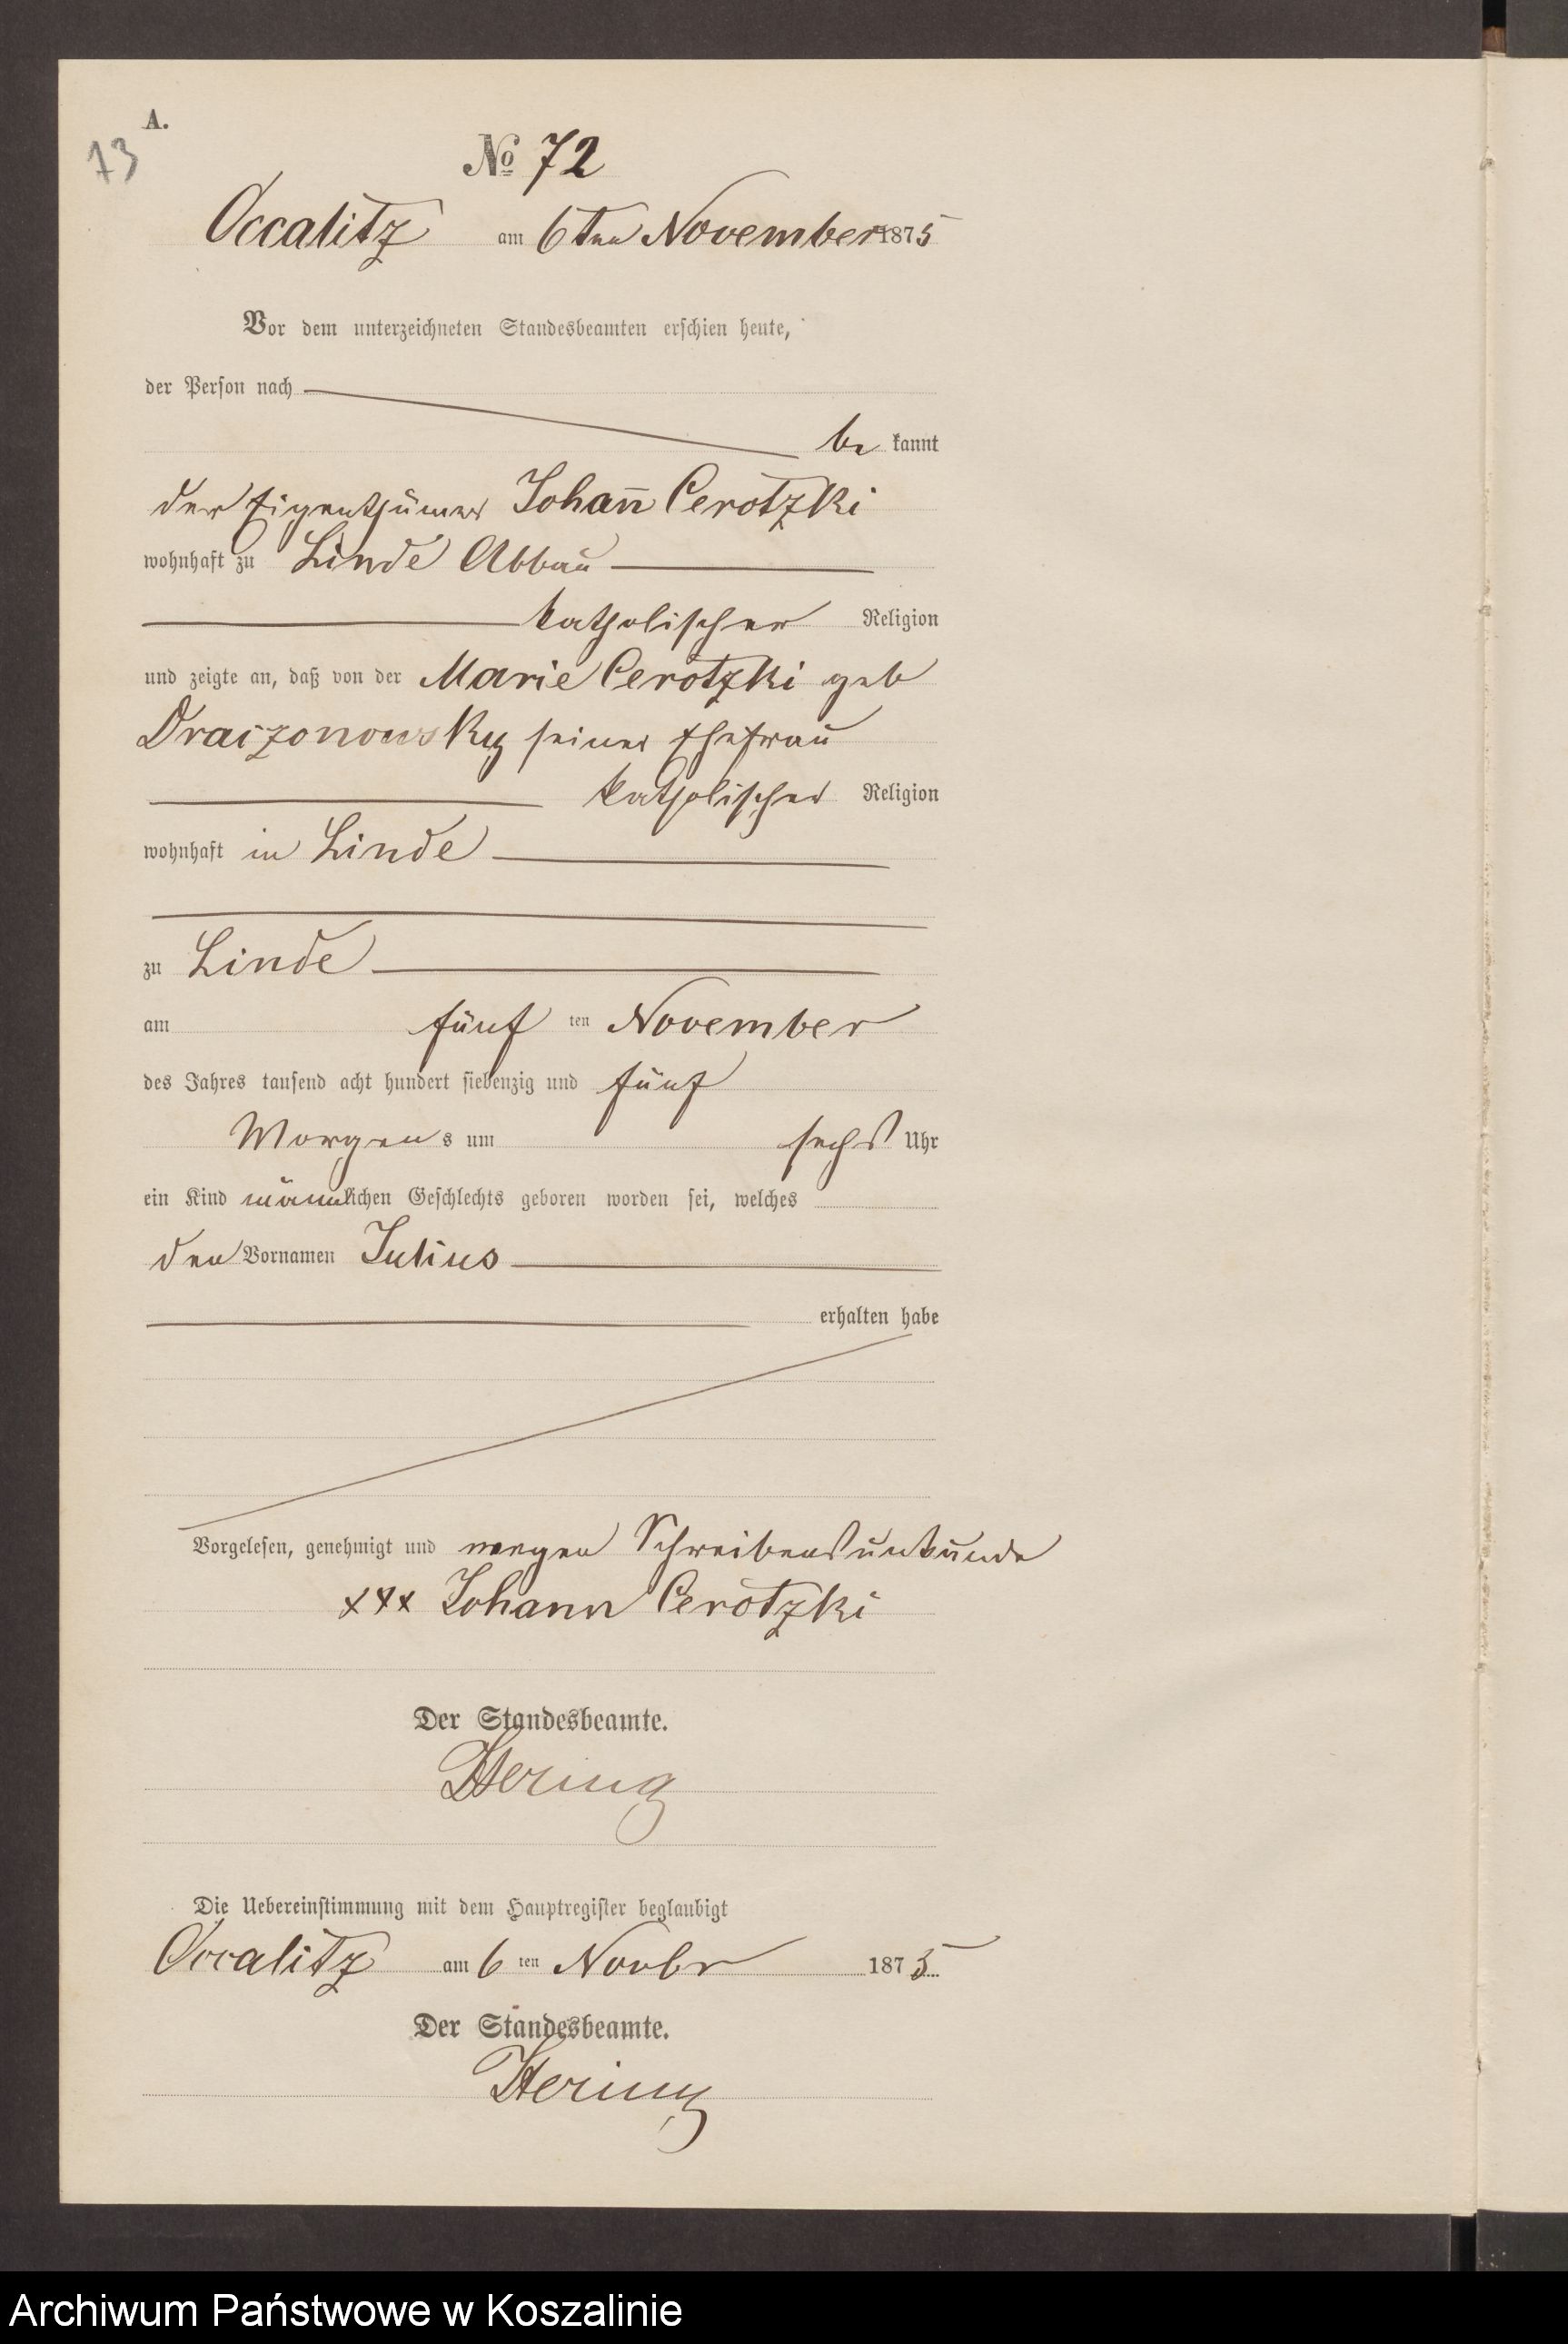 A.
73
No 72
Occalitz am 6ten November 1875
Vor dem unterzeichneten Standesbeamten erschien heute,
der Person nach
be kannt
der Eigenthümer Johan̅ Cerotzki
wohnhaft zu Linde Abbau
katholischer Religion
und zeigte an, daß von der Marie Cerotzki geb
Draszonowsky seiner Ehefrau
katholischer Religion
wohnhaft in Linde
zu Linde
am fünf ten November
des Jahres tausend acht hundert siebenzig und fünf
Morgen s um sechs Uhr
ein Kind männlichen Geschlechts geboren worden sei, welches
den Vornamen Julius
erhalten habe
Vorgelesen, genehmigt und wegen Schreibensunkunde
xxx Johann Cerotzki
Der Standesbeamte.
Hering
Die Uebereinstimmung mit dem Hauptregister beglaubigt
Occalitz am 6 ten Novbr 1875
Der Standesbeamte.
Hering
Archiwum Państwowe w Koszalinie